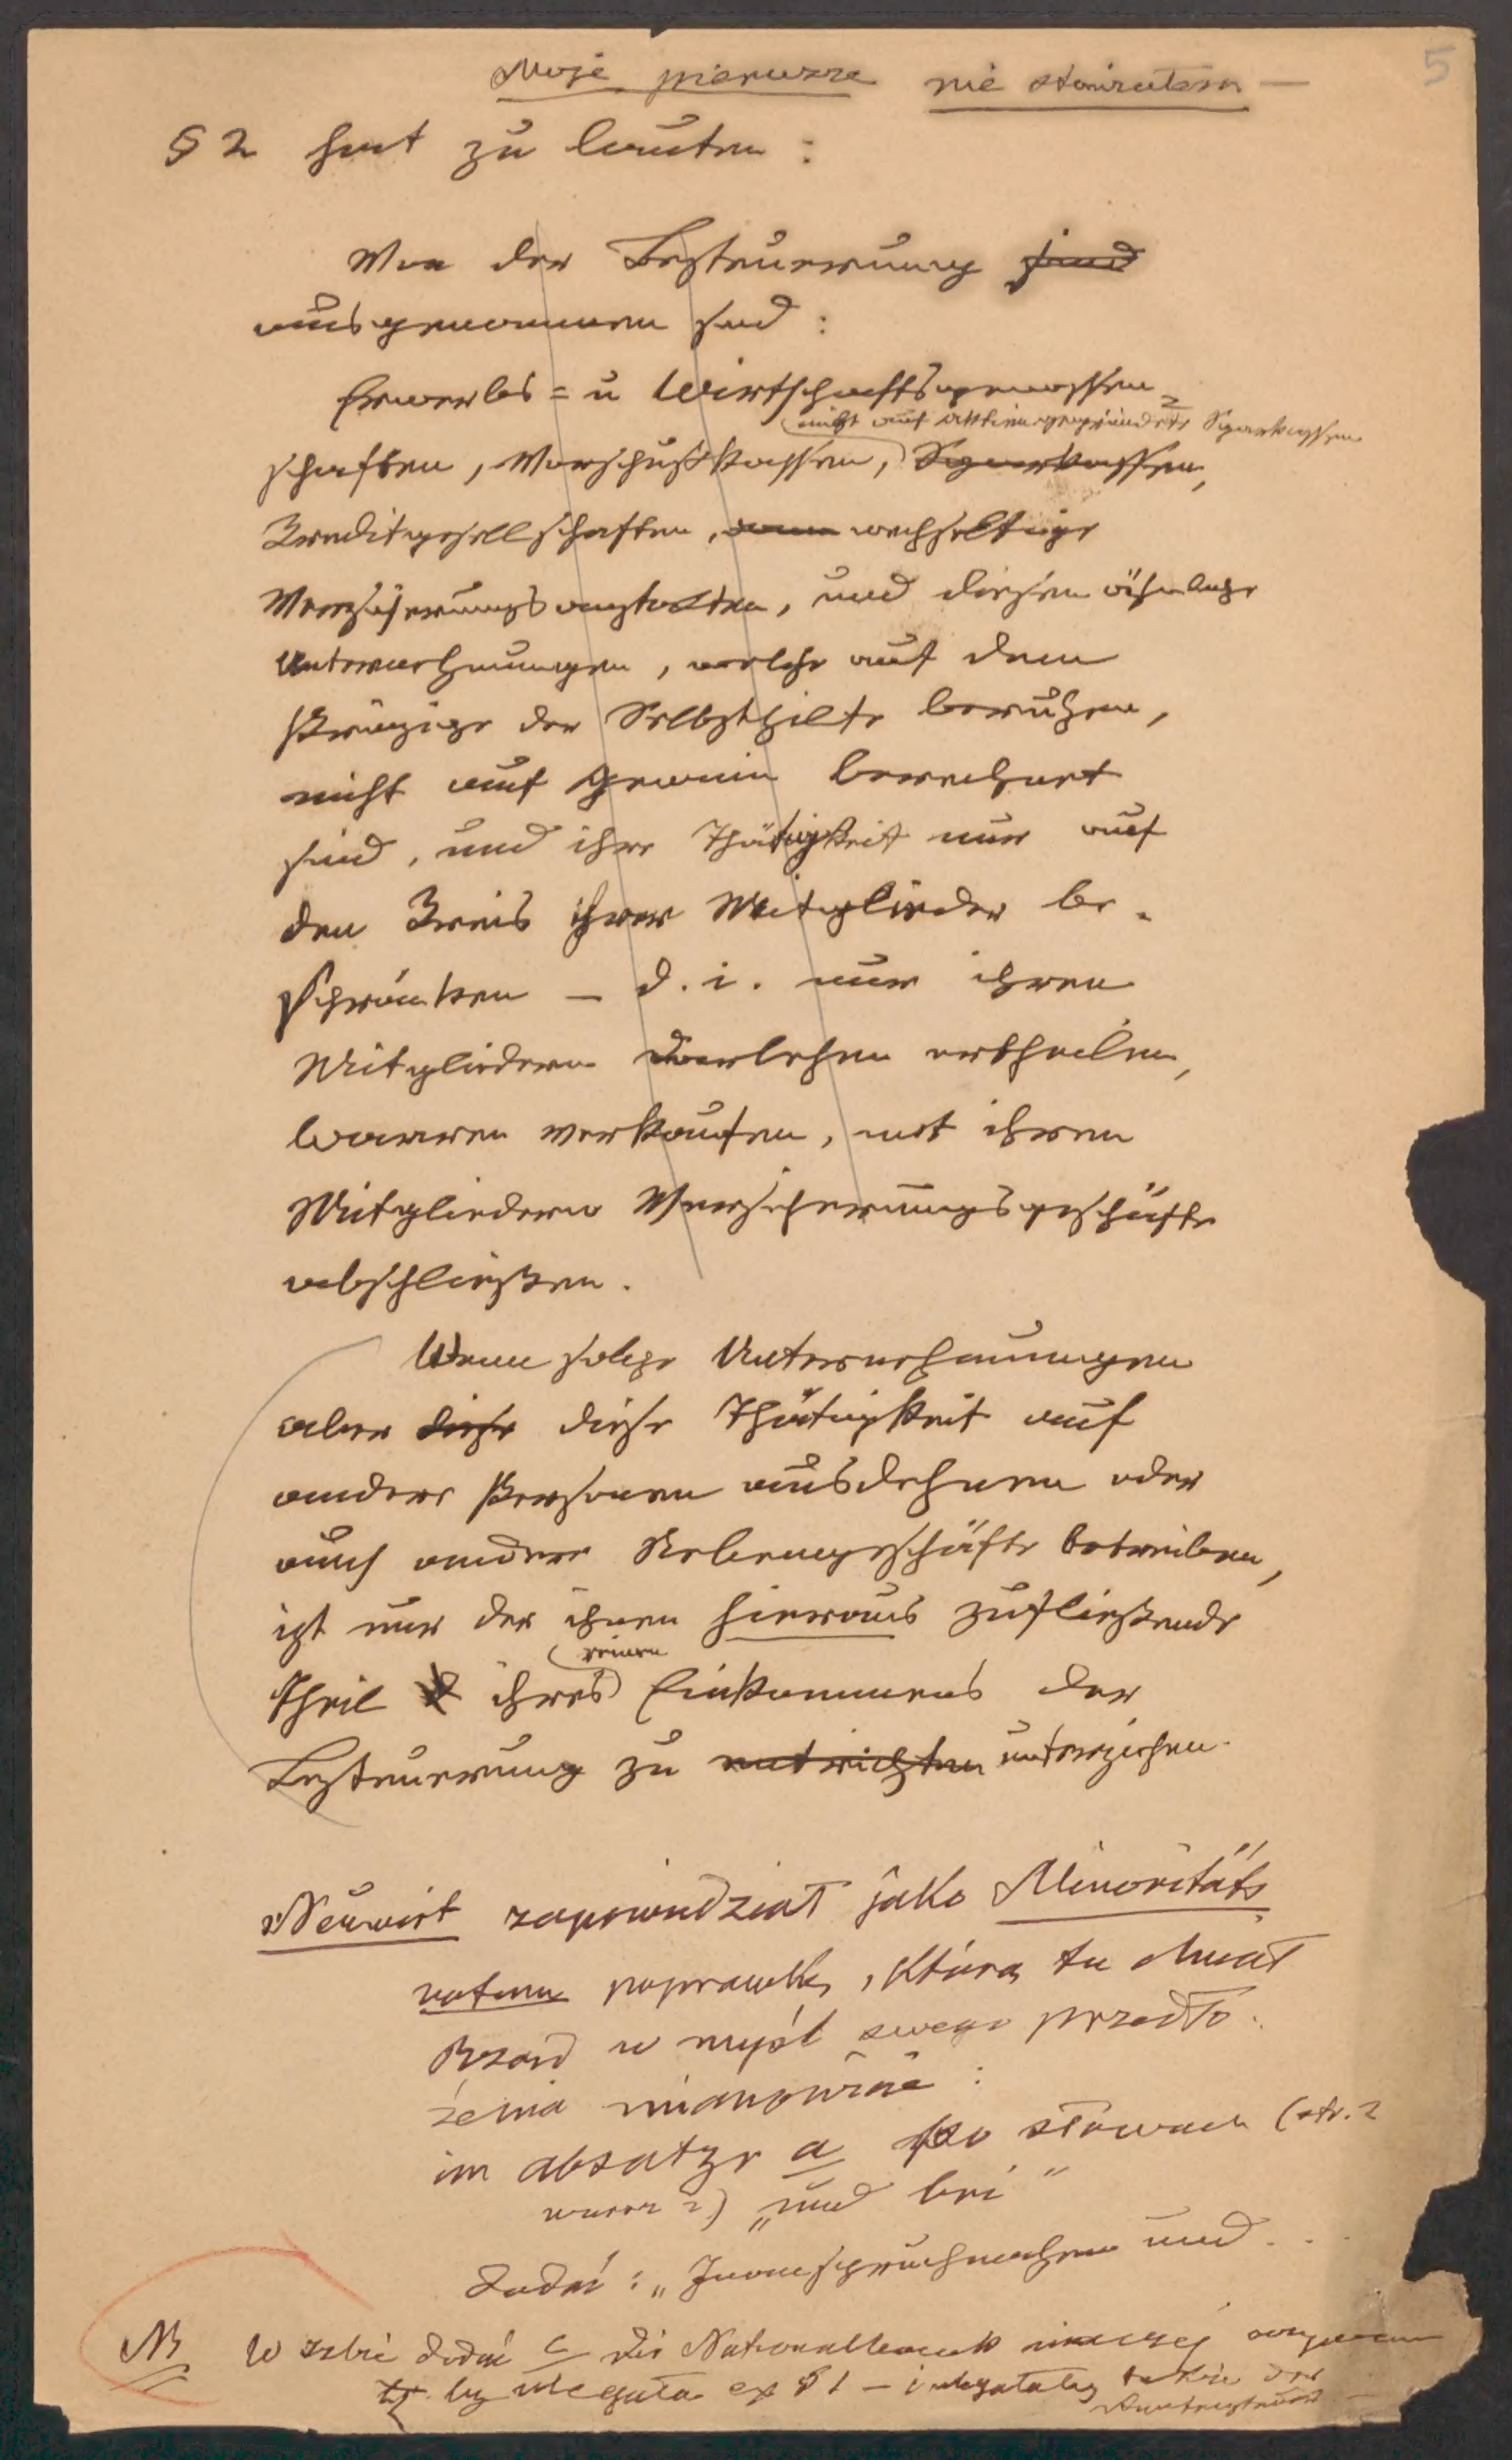 5
Moje pierwsze nie
§ 2 hat zu lauten:
Von der Besteuerung sind
ausgenommen sind:
Erwerbs= u Wirtschaftsgenossen=
nicht auf Aktien gegründete Sparkassen
schaften, Vorschußkassen, Sparkassen,
Kreditgesellschaften, wechselseitige
Versicherungsanstalten, und diesen ähnliche
Unternehmungen, welche auf dem
Prinzipe der Selbsthilfe beruhen,
nicht auf Gewinn berechnet
sind, und ihre Thätigkeit nur auf
den Kreis ihrer Mitglieder be-
schränken – d. i. nur ihren
Mitgliedern Darlehen ertheilen,
Waaren verkaufen, mit ihren
Mitgliedern Versicherungsgeschäfte
abschließen.
Wenn solche Unternehmungen
aber diese diese Thätigkeit auf
andere Personen ausdehnen oder
auch andere Nebengeschäfte betreiben,
ist nur der ihnen hieraus zufließende
reinen
Theil ihres Einkommens der
Besteuerung zu entrichten unterziehen.
Neuwirt zapowiedział jako Minoritäts
votum poprawkę, którą tu chciał
Rząd w myśl swego przedło-
żenia mianowicie:
im Absatze a po słowach (str. 2
wiersz 2) „und bei"
dodać: „Inanspruchnahme und . . .
NB W Izbie dodać c die Nationalbank
by ulegała ex § 1 – i ulegałaby także der